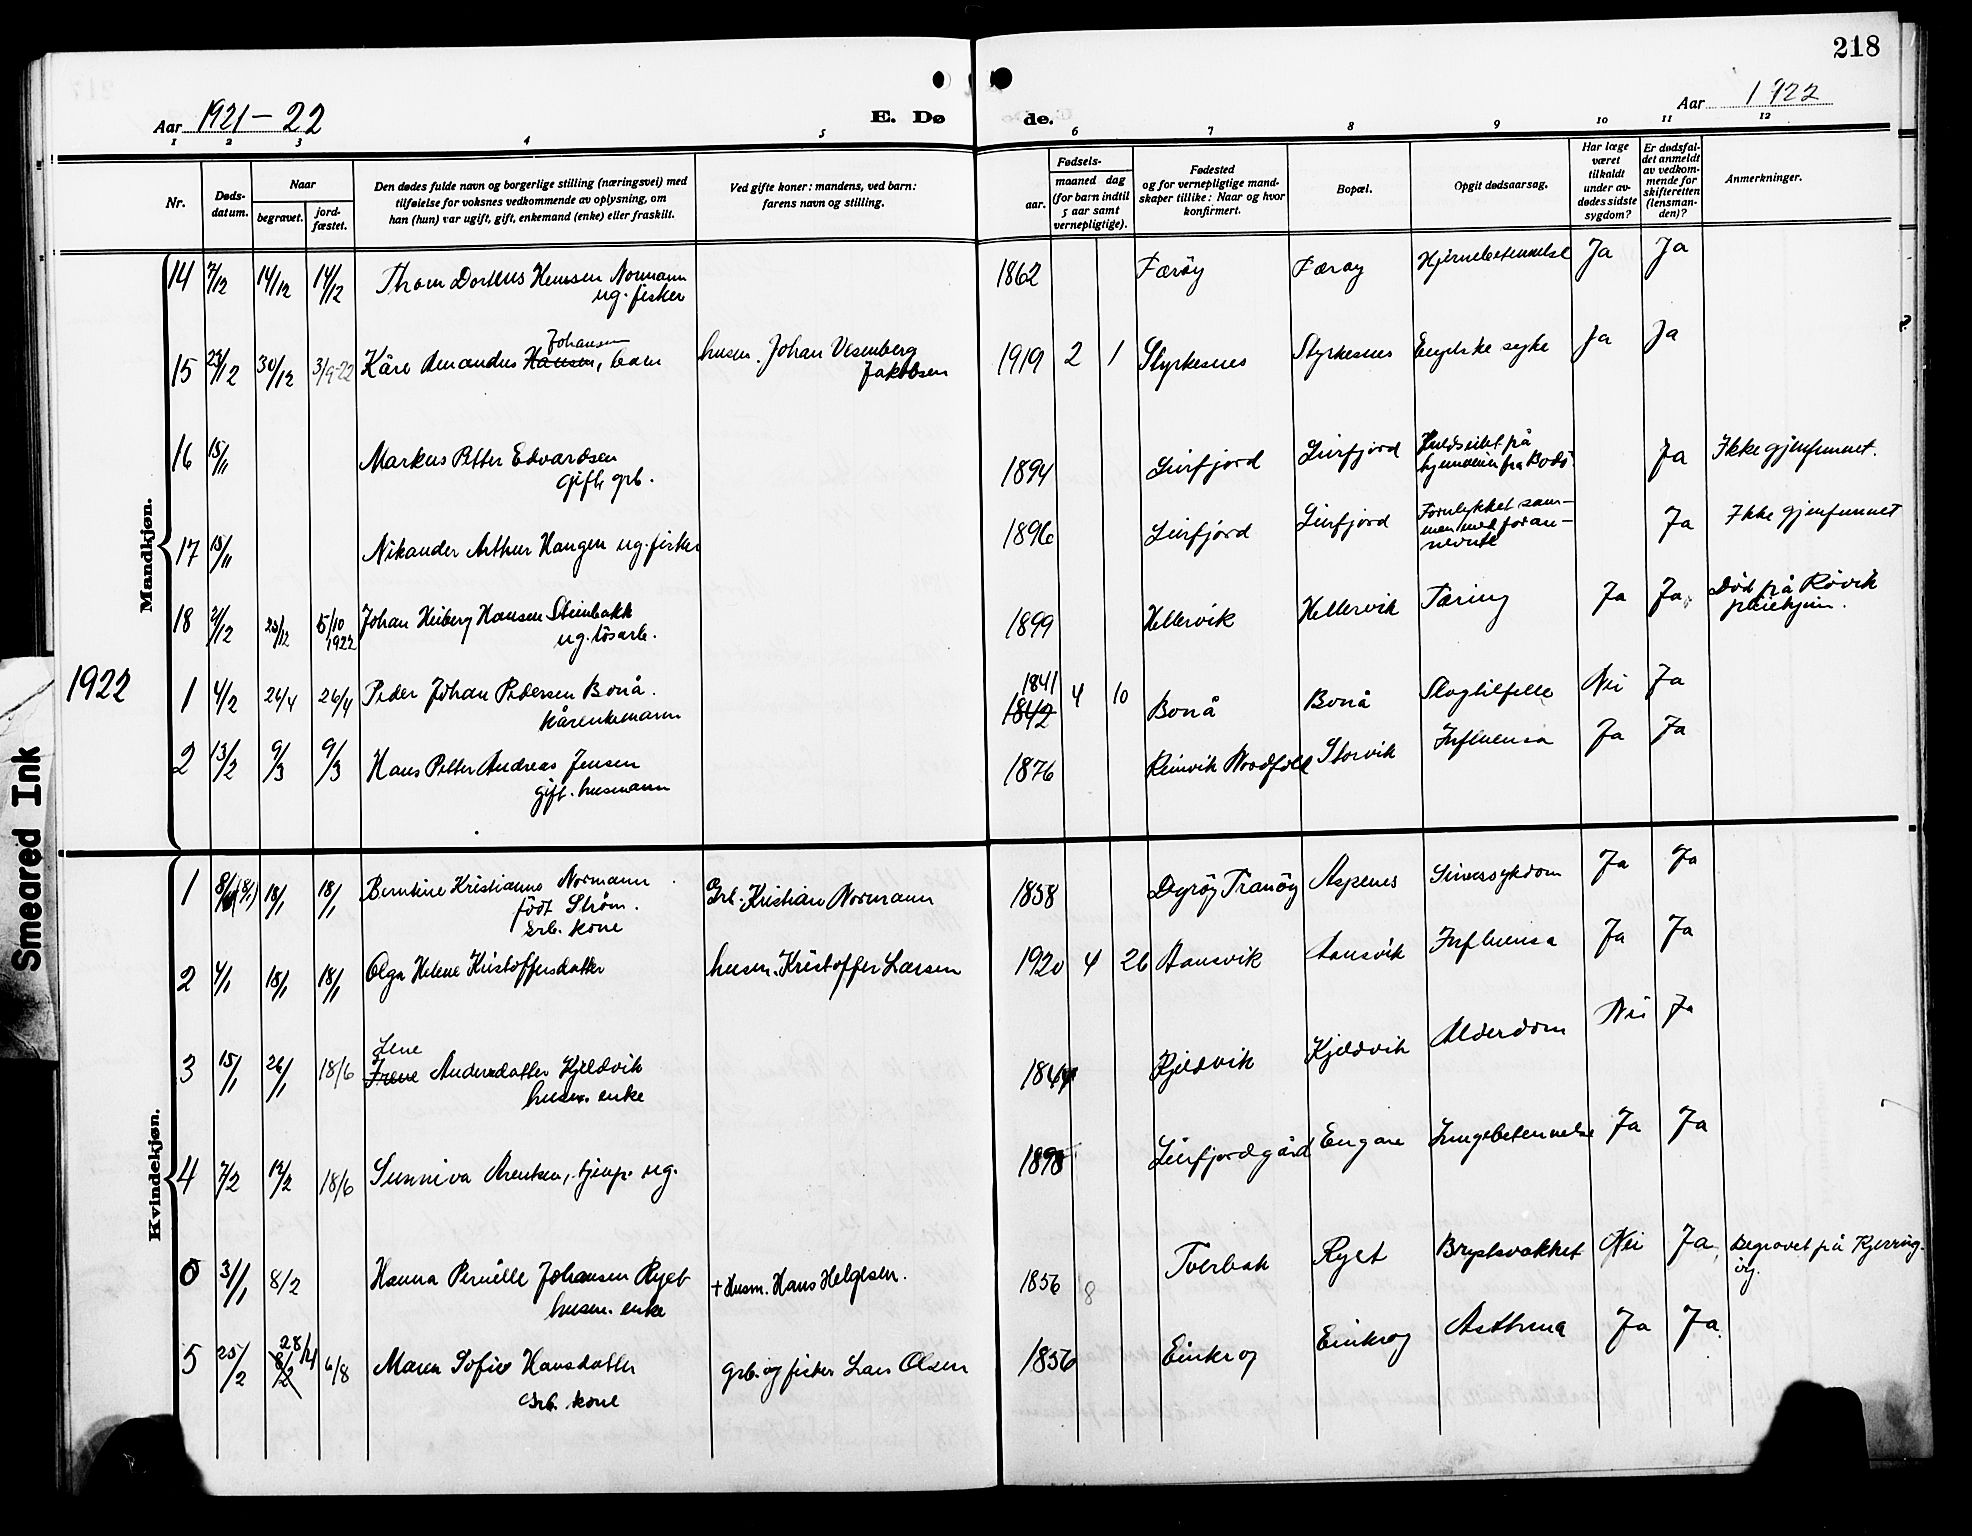 218
Aar 1921-22
E. Dø
de.
Aar 1922
1 2 3 4 5 6 7 8 9 10 11 12
Nr.
Døds-
datum.
Naar
begravet.
jord-
fæstet.
Den dødes fulde navn og borgerlige stilling (næringsvei) med
tilføielse for voksnes vedkommende av oplysning, om
han (hun) var ugift, gift, enkemand (enke) eller fraskilt.
Ved gifte koner: mandens, ved barn:
farens navn og stilling.
Fødsels-
aar.
maaned dag
(for barn indtil
5 aar samt
vernepligtige).
Fødested
og for vernepligtige mand-
skaper tillike: Naar og hvor
konfirmert.
Bopæl.
Opgit dødsaarsag.
Har læge
været
tilkaldt
under av-
dødes sidste
sygdom?
Er dødsfal-
det anmeldt
av vedkom-
mende for
skifteretten
(lensman-
den)?
Anmerkninger.
Mandkjøn.
14 7/12 14/12 14/12 Thom Dorteus Hemsen Normann 1862 Færøy Færøy Hjernebetennelse Ja Ja
ug. fisker
Johansen
15 29/12 30/12 3/9-22 Kåre Amandus Hansen, barn husm. Johan Vesenberg 1919 2 1 Styrkesnes Styrkesnes Engelske syke Ja Ja
Jakobsen
16 15/11 Markus Petter Edvardsen 1894 Leirfjord Leirfjord Kuldseilet på Ja Ikke gjenfunnet.
gift, grb. hjemveien fra Bodø.
17 15/11 Nikander Arthur Haugen ug. fisker 1896 Leirfjord Leirfjord Forulykket sam- Ja Ikke gjenfunnet
men med foran-
nevnte
18 2/12 23/12 5/10 1922 Johan Heiberg Hansen Steinbakk 1899 Hellervik Hellervik Tæring Ja Ja. Død på Røvik
ug. løsarb. pleiehjem.
1922
1 4/2 26/4 26/4 Peder Johan Pedersen Bonå. 1841 1842 4 10 Bonå Bonå Slagtilfelle Nei Ja
kårenkemann
2 13/2 9/3 9/3 Hans Petter Andreas Jensen 1876 Reinvik Nordfold Storvik Influensa Ja Ja
gift. husmann
Kvindekjøn.
1 8/1 (8/1) 18/1 18/1 Berntine Kristianne Normann Grb. Kristian Normann 1858 Dyrøy Tranøy Aspenes Sinnssykdom Ja Ja
født Strøm.
Grb. kone
2 4/1 18/1 18/1 Olga Helene Kristoffersdatter husm. Kristoffer Larsen 1920 4 26 Aansvik Aansvik Influensa Ja Ja
Lene
3 15/1 26/1 18/6 Irene Andersdatter Kjeldvik 1844 Kjeldvik Kjeldvik Alderdom Nei Ja
husm. enke
4 7/2 14/2 18/6 Sunniva Arentsen, tjenp. ug. 1898 Leirfjordgård Engan Lungebetennelse Ja Ja
5 31/1 8/2 Hanna Pernille Johansen Ryet + Husm. Hans Helgesen. 1856 8 Tverbak Ryet Brystsvakhet Nei Ja. Begravet på Kjerring-
husm. enke øy.
5 25/2 8/2 28/4 6/8 Maren Sofie Hansdatter grb. og fisker Lars Olsen 1856 Einkrog Einkrog Asthma Ja Ja.
Grb. kone
Smeared Ink